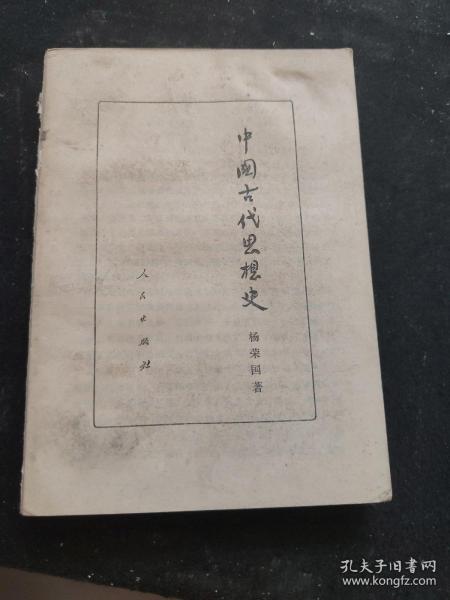 中國古代思想史
杨荣国著
人民出版社
孔夫子旧书网
www.kongfz.com